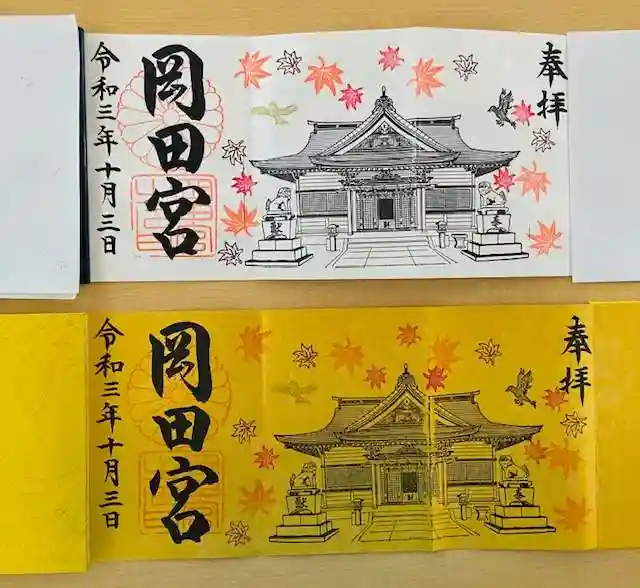 奉拝
岡田宮
令和三年十月三日
奉拝
岡田宮
令和三年十月三日